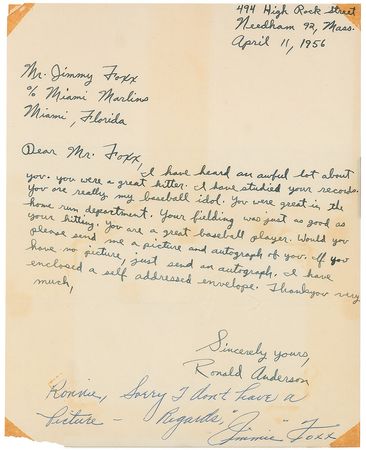 494 High Rock Street
Needham 92, Mass.
April 11, 1956
Mr. Jimmy Foxx
% Miami Marlins
Miami, Florida
Dear Mr. Foxx,
I have heard an awful lot about
you. you were a great hitter. I have studied your records.
You are really my baseball idol. You were great in the
home run department. Your fielding was just as good as
your hitting. You are a great baseball player. Would you
please send me a picture and autograph of you. If you
have no picture, just send an autograph. I have
enclosed a self addressed envelope. Thankyou very
much,
Sincerely yours,
Ronald Anderson
Ronnie, Sorry I don't have a
Picture – Regards,
"Jimmie" Foxx